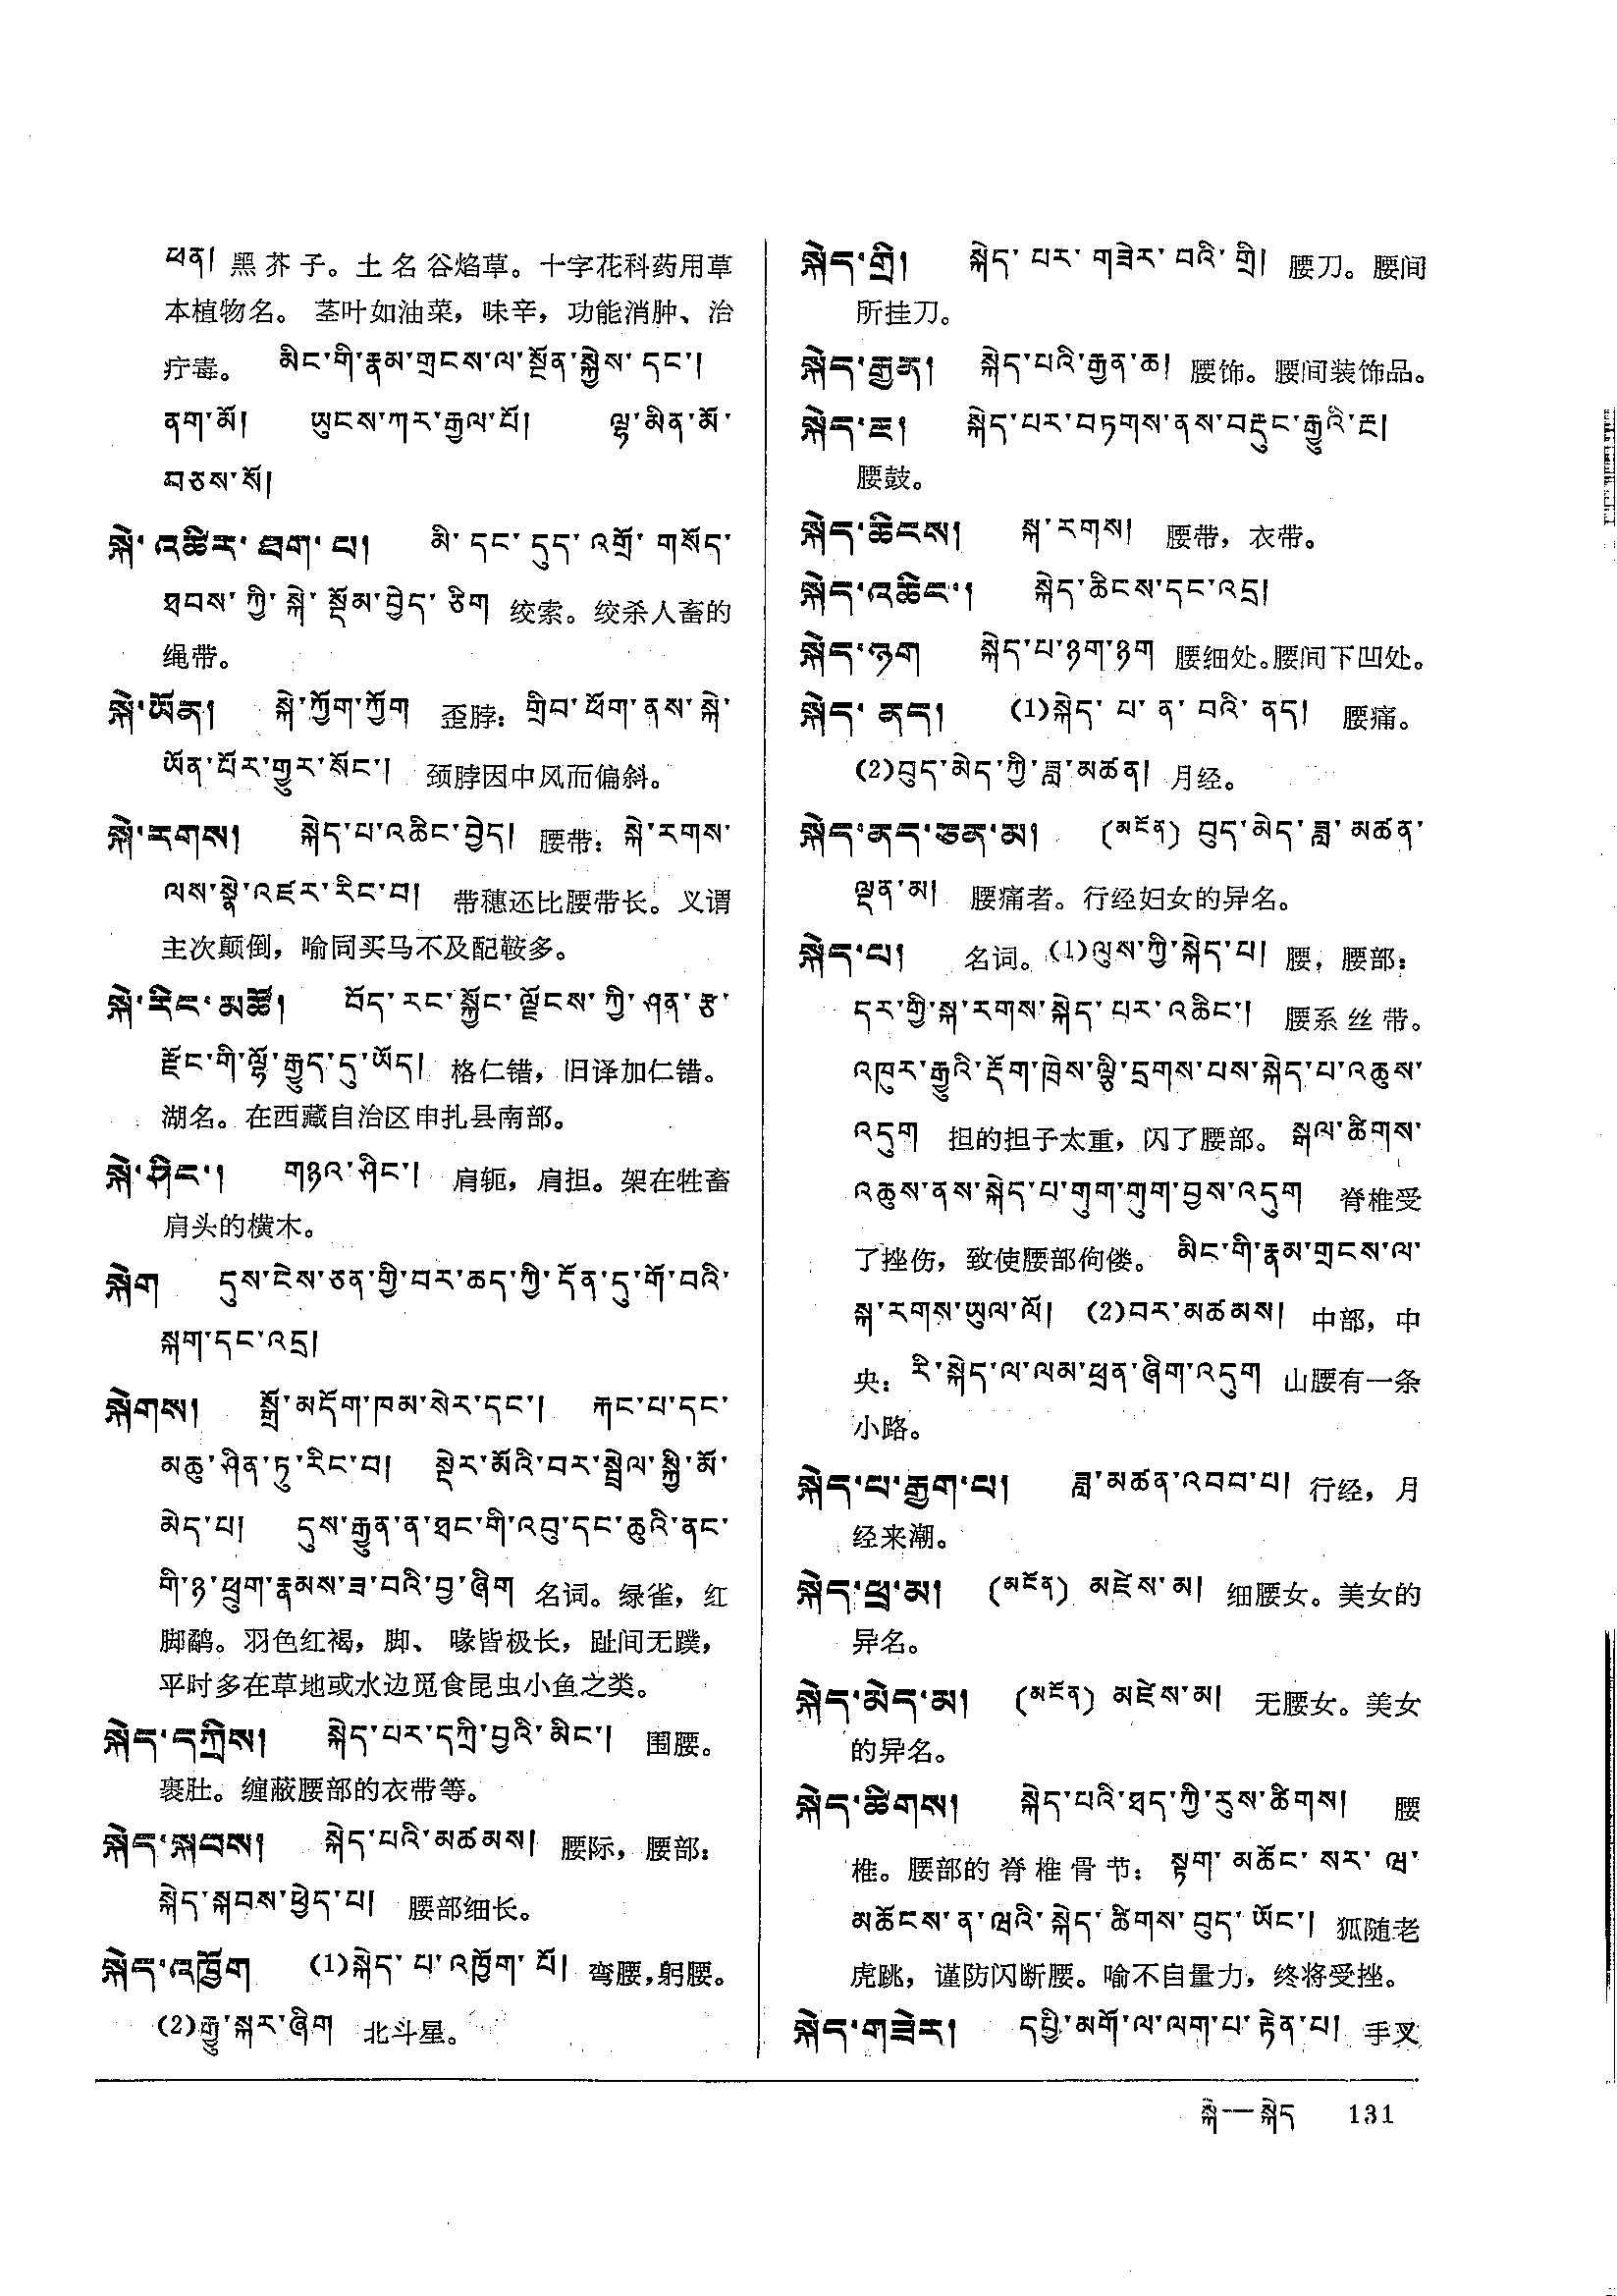 ཕན། 黑芥子。土名谷焰草。十字花科药用草
本植物名。 茎叶如油菜，味辛，功能消肿、治
疔毒。 མིང་གི་རྣམ་གྲངས་ལ་སྔོན་སྐྱེས་དང་།
ནག་མོ། ཡུངས་ཀར་རྒྱལ་པོ། ལྷ་མིན་མོ་
བཅས་སོ།
སྐེ་འཚིར་ཐག་པ། མི་དང་དུད་འགྲོ་གསོད་
ཐབས་ཀྱི་སྐེ་སྡོམ་བྱེད་ཅིག 绞索。绞杀人畜的
绳带。
སྐེ་ཡོན། སྐེ་ཀྱོག་ཀྱོག 歪脖：གྲིབ་ཕོག་ནས་སྐེ་
ཡོན་པོར་གྱུར་སོང་། 颈脖因中风而偏斜。
སྐེ་རགས། སྐེད་པ་འཆིང་བྱེད། 腰带：སྐེ་རགས་
ལས་སྣེ་འཛར་རིང་བ། 带穗还比腰带长。义谓
主次颠倒，喻同买马不及配鞍多。
སྐེ་རིང་མཚོ། བོད་རང་སྐྱོང་ལྗོངས་ཀྱི་ཤན་རྩ་
རྫོང་གི་ལྷོ་རྒྱུད་དུ་ཡོད། 格仁错，旧译加仁错。
湖名。在西藏自治区申扎县南部。
སྐེ་ཤིང་། གཉའ་ཤིང་། 肩轭，肩担。架在牲畜
肩头的横木。
སྐེག དུས་ངེས་ཅན་གྱི་བར་ཆད་ཀྱི་དོན་དུ་གོ་བའི་
སྐག་དང་འདྲ།
སྐེགས། སྒྲོ་མདོག་ཁམ་སེར་དང་། རྐང་པ་དང་
མཆུ་ཤིན་ཏུ་རིང་བ། སྡེར་མོའི་བར་སྦྲེལ་སྐྱི་མོ་
མེད་པ། དུས་རྒྱུན་ན་ཐང་གི་འབུ་དང་ཆུའི་ནང་
གི་ཉ་ཕྲུག་རྣམས་ཟ་བའི་བྱ་ཞིག 名词。绿雀，红
脚鹬。羽色红褐，脚、 喙皆极长，趾间无蹼，
平时多在草地或水边觅食昆虫小鱼之类。
སྐེད་དཀྲིས། སྐེད་པར་དཀྲི་བྱའི་མིང་། 围腰。
裹肚。缠蔽腰部的衣带等。
སྐེད་སྐབས། སྐེད་པའི་མཚམས། 腰际，腰部：
སྐེད་སྐབས་ཕྱེད་པ། 腰部细长。
སྐེད་འཁྱོག (1)སྐེད་པ་འཁྱོག་པོ། 弯腰，躬腰。
(2)རྒྱུ་སྐར་ཞིག 北斗星。
སྐེད་གྲི། སྐེད་པར་གཟེར་བའི་གྲི། 腰刀。腰间
所挂刀。
སྐེད་རྒྱན། སྐེད་པའི་རྒྱན་ཆ། 腰饰。腰间装饰品。
སྐེད་རྔ། སྐེད་པར་བཏགས་ནས་བརྡུང་རྒྱུའི་རྔ།
腰鼓。
སྐེད་ཆིངས། སྐ་རགས། 腰带，衣带。
སྐེད་འཆིང་། སྐེད་ཆིངས་དང་འདྲ།
སྐེད་ཉག སྐེད་པ་ཉག་ཉག 腰细处。腰间下凹处。
སྐེད་ནད། (1)སྐེད་པ་ན་བའི་ནད། 腰痛。
(2)བུད་མེད་ཀྱི་ཟླ་མཚན། 月经。
སྐེད་ནད་ཅན་མ། (མངོན) བུད་མེད་ཟླ་མཚན་
ལྡན་མ། 腰痛者。行经妇女的异名。
སྐེད་པ། 名词。(1)ལུས་ཀྱི་སྐེད་པ། 腰，腰部：
དར་གྱི་སྐ་རགས་སྐེད་པར་འཆིང་། 腰系丝带。
འཁུར་རྒྱུའི་དོག་ཁྲེས་ལྕི་དྲགས་པས་སྐེད་པ་འཆུས་
འདུག 担的担子太重，闪了腰部。 སྒལ་ཚིགས་
འཆུས་ནས་སྐེད་པ་གུག་གུག་བྱས་འདུག 脊椎受
了挫伤，致使腰部佝偻。 མིང་གི་རྣམ་གྲངས་ལ་
སྐ་རགས་ཡུལ་ལོ། (2)བར་མཚམས། 中部，中
央：རི་སྐེད་ལ་ལམ་ཕྲན་ཞིག་འདུག 山腰有一条
小路。
སྐེད་པ་རྒྱག་པ། ཟླ་མཚན་འབབ་པ། 行经，月
经来潮。
སྐེད་ཕྲ་མ། (མངོན) མཛེས་མ། 细腰女。美女的
异名。
སྐེད་མེད་མ། (མངོན) མཛེས་མ། 无腰女。美女
的异名。
སྐེད་ཚིགས། སྐེད་པའི་ཐད་ཀྱི་རུས་ཚིགས། 腰
椎。腰部的脊椎骨节：སྟག་མཆོང་སར་ཝ་
མཆོངས་ན་ཝའི་སྐེད་ཚིགས་བུད་ཡོང་། 狐随老
虎跳，谨防闪断腰。喻不自量力，终将受挫。
སྐེད་གཟེར། དཔྱི་མགོ་ལ་ལག་པ་རྟེན་པ། 手叉
སྐེ—སྐེད 131